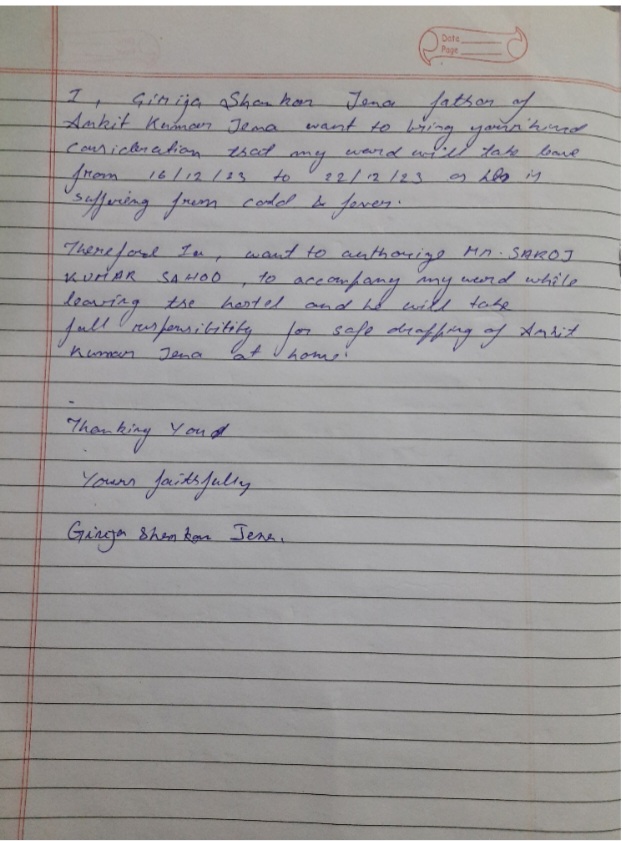 Date
Page
I, Girija Shankar Jena father of
Ankit Kumar Jena want to bring your kind
consideration that my word will take leave
from 16/12/23 to 22/12/23 as he is
suffering from cold & fever.
Therefore I, want to authorize MR. SAROJ
KUMAR SAHOO, to accompany my word while
leaving the hostel and he will take
full responsibility for safe dropping of Ankit
Kumar Jena at home.
Thanking You
Yours faithfully
Girija Shankar Jena.